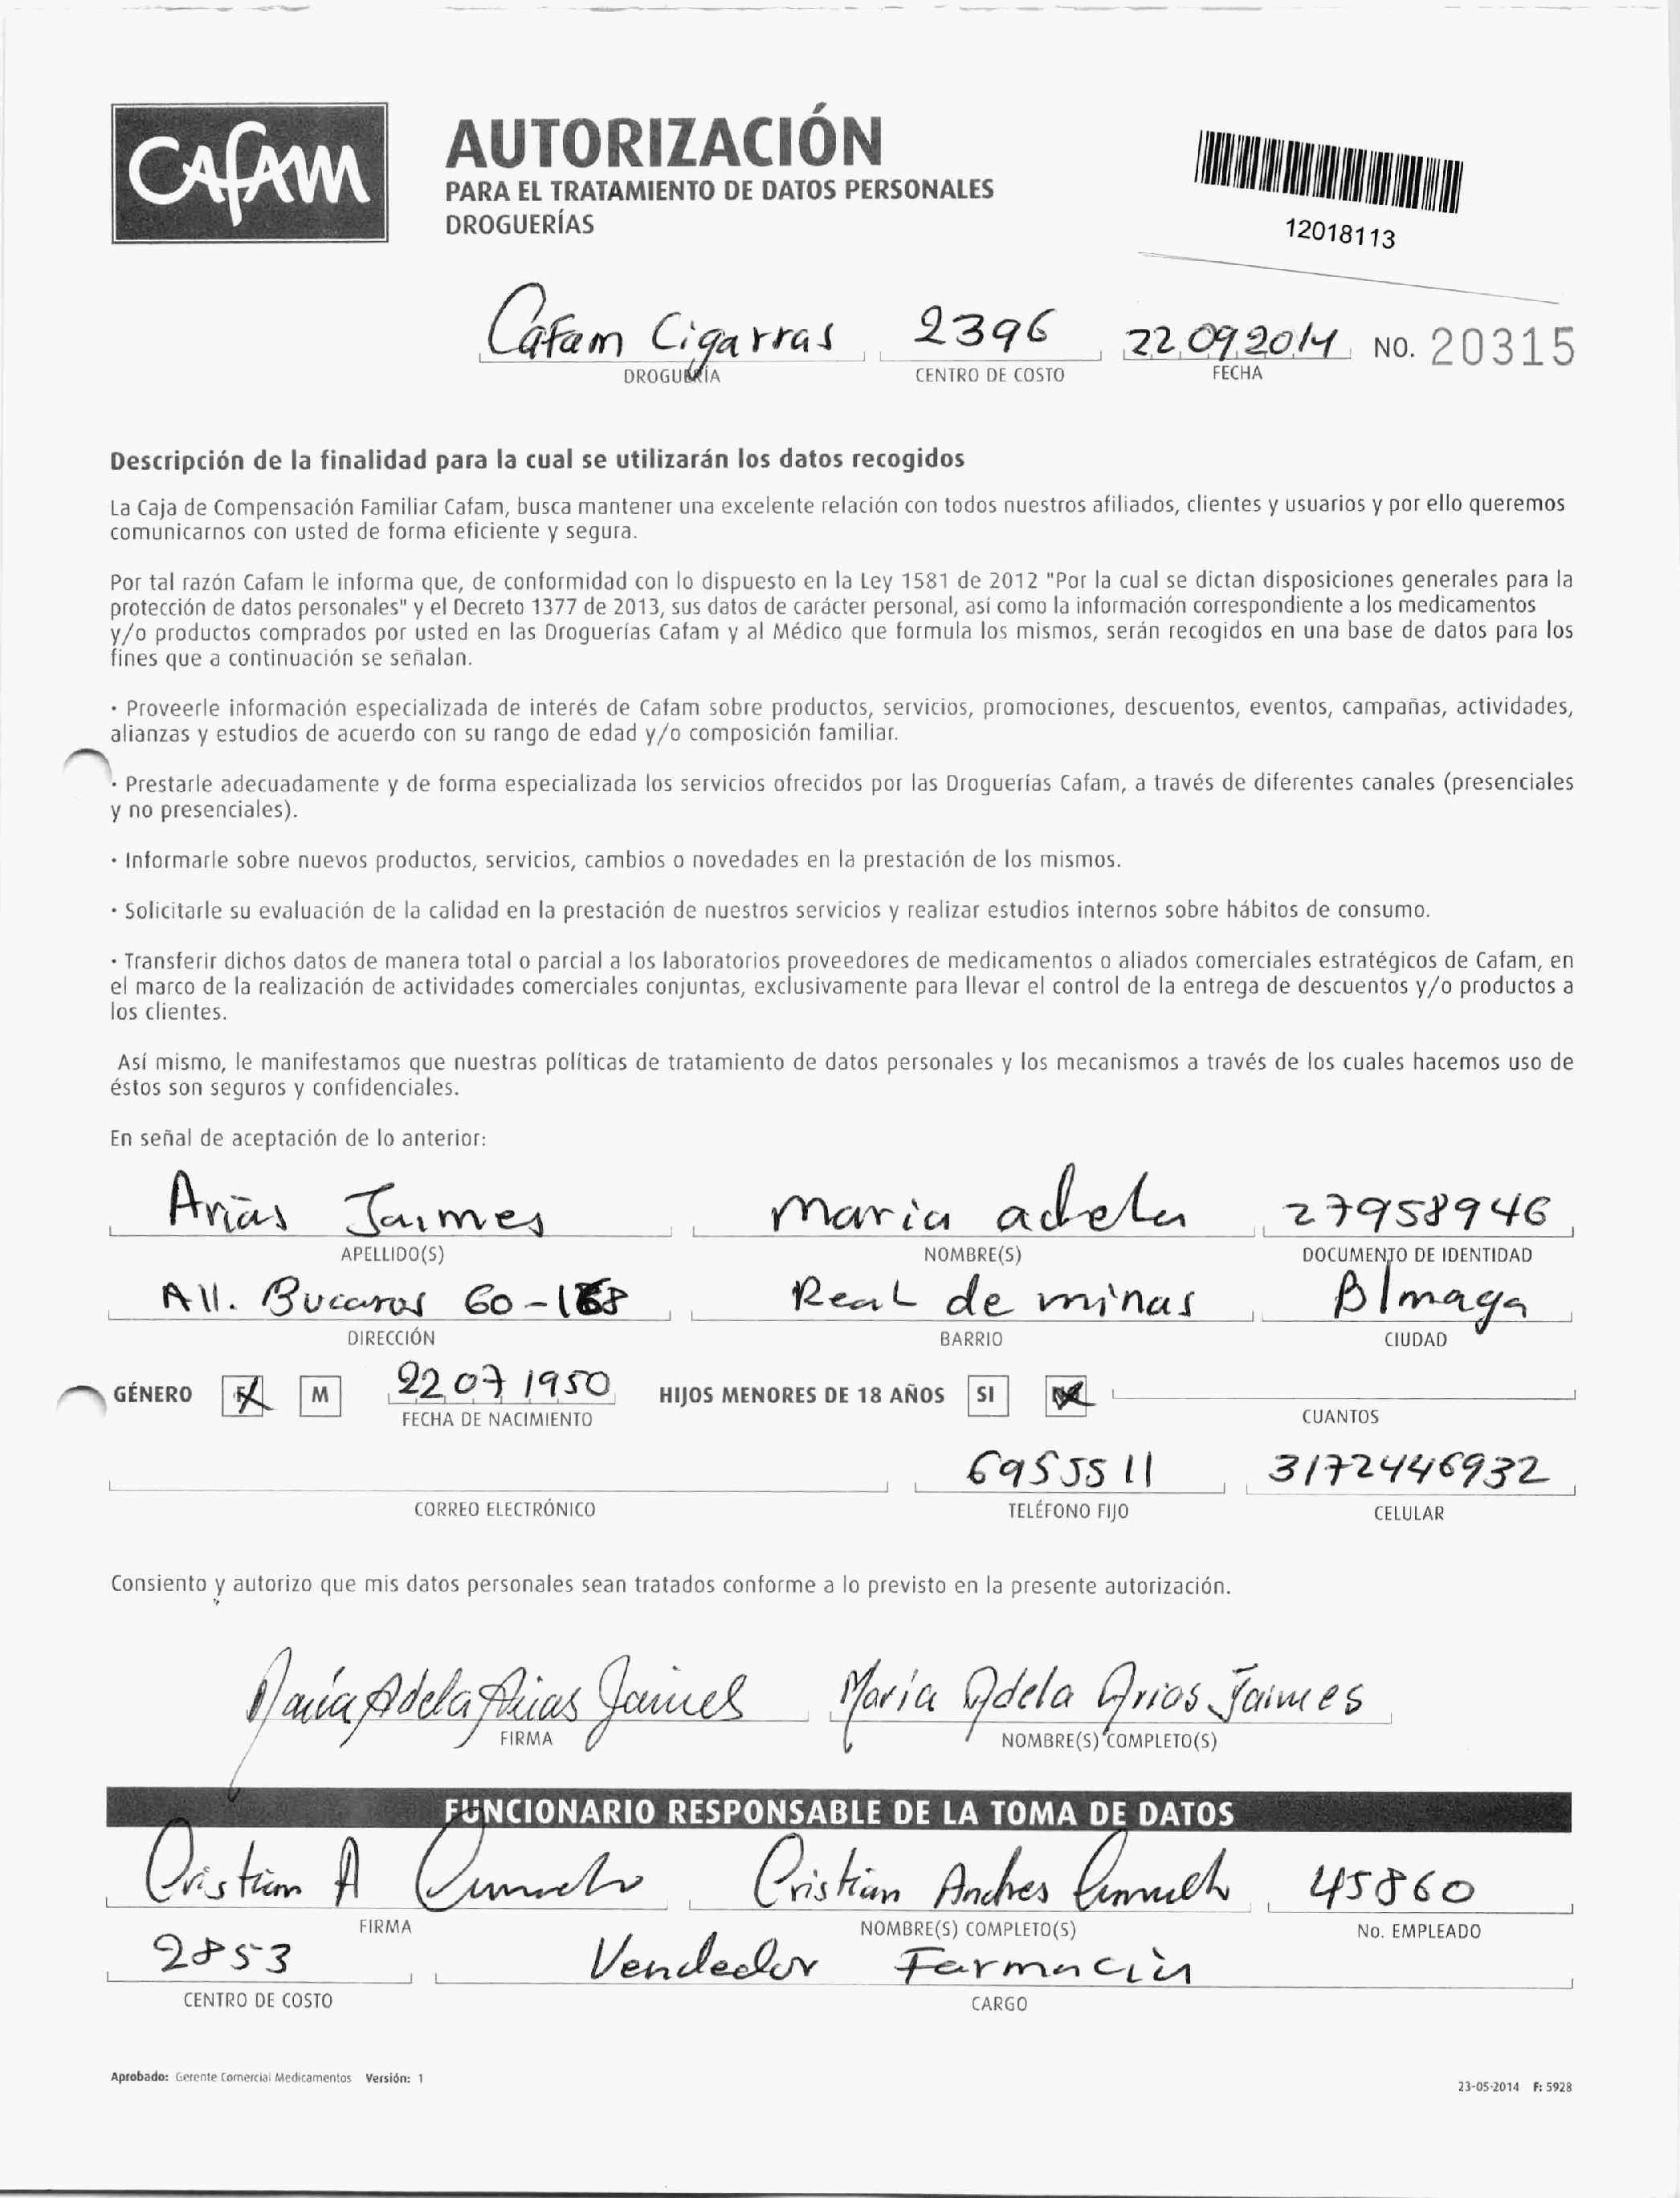 CAFAM
AUTORIZACIÓN
PARA EL TRATAMIENTO DE DATOS PERSONALES
DROGUERÍAS
12018113
Cafam Cigarras 2396 22 09 2014 NO. 20315
DROGUERÍA CENTRO DE COSTO FECHA
Descripción de la finalidad para la cual se utilizarán los datos recogidos
La Caja de Compensación Familiar Cafam, busca mantener una excelente relación con todos nuestros afiliados, clientes y usuarios y por ello queremos
comunicarnos con usted de forma eficiente y segura.
Por tal razón Cafam le informa que, de conformidad con lo dispuesto en la Ley 1581 de 2012 "Por la cual se dictan disposiciones generales para la
protección de datos personales" y el Decreto 1377 de 2013, sus datos de carácter personal, así como la información correspondiente a los medicamentos
y/o productos comprados por usted en las Droguerías Cafam y al Médico que formula los mismos, serán recogidos en una base de datos para los
fines que a continuación se señalan.
· Proveerle información especializada de interés de Cafam sobre productos, servicios, promociones, descuentos, eventos, campañas, actividades,
alianzas y estudios de acuerdo con su rango de edad y/o composición familiar.
· Prestarle adecuadamente y de forma especializada los servicios ofrecidos por las Droguerías Cafam, a través de diferentes canales (presenciales
y no presenciales).
· Informarle sobre nuevos productos, servicios, cambios o novedades en la prestación de los mismos.
· Solicitarle su evaluación de la calidad en la prestación de nuestros servicios y realizar estudios internos sobre hábitos de consumo.
· Transferir dichos datos de manera total o parcial a los laboratorios proveedores de medicamentos o aliados comerciales estratégicos de Cafam, en
el marco de la realización de actividades comerciales conjuntas, exclusivamente para llevar el control de la entrega de descuentos y/o productos a
los clientes.
Así mismo, le manifestamos que nuestras políticas de tratamiento de datos personales y los mecanismos a través de los cuales hacemos uso de
éstos son seguros y confidenciales.
En señal de aceptación de lo anterior:
Arias Jaimes maria adela 27958946
APELLIDO(S) NOMBRE(S) DOCUMENTO DE IDENTIDAD
All. Bucaros 60-168 Real de minas B/maga
DIRECCIÓN BARRIO CIUDAD
GÉNERO F M 22 07 1950 HIJOS MENORES DE 18 AÑOS SI NO
FECHA DE NACIMIENTO CUANTOS
6955511 3172446932
CORREO ELECTRÓNICO TELÉFONO FIJO CELULAR
Consiento y autorizo que mis datos personales sean tratados conforme a lo previsto en la presente autorización.
María Adela Arias Jaimes María Adela Arias Jaimes
FIRMA NOMBRE(S) COMPLETO(S)
FUNCIONARIO RESPONSABLE DE LA TOMA DE DATOS
Cristian A Cristian Andres 45860
FIRMA NOMBRE(S) COMPLETO(S) No. EMPLEADO
2853 Vendedor Farmacia
CENTRO DE COSTO CARGO
Aprobado: Gerente Comercial Medicamentos Versión: 1
23-05-2014 F: 5928